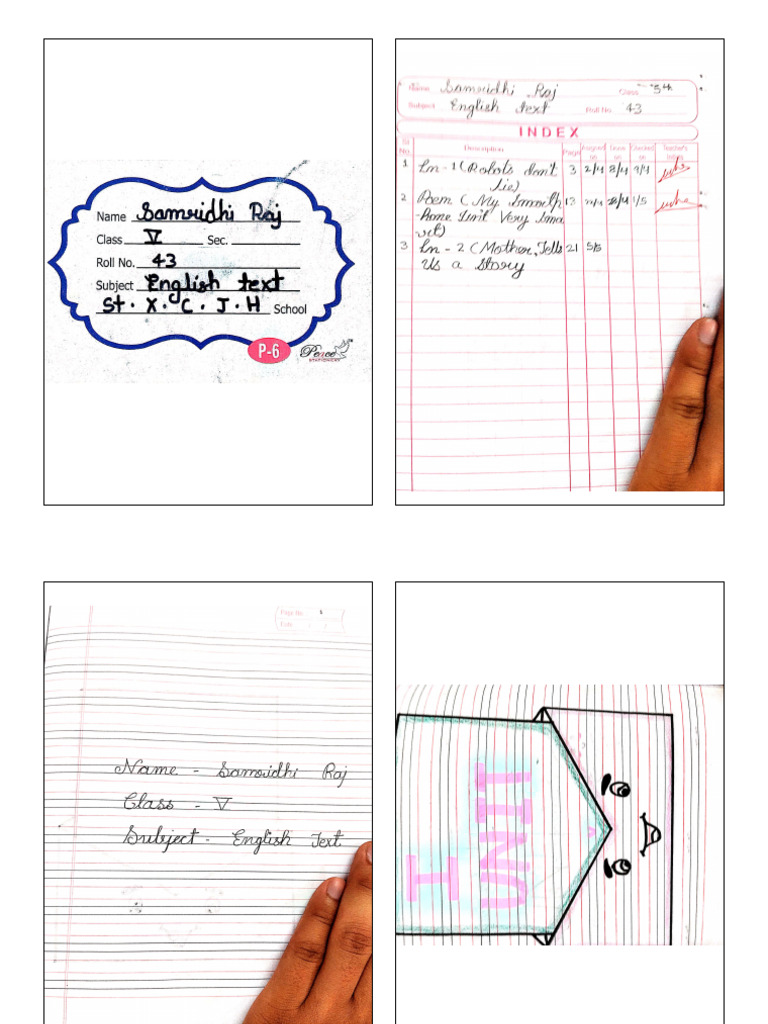 Name Samridhi Raj
Class V Sec.
Roll No. 43
Subject English text
St. X. C. J. H School
P-6
Peace
STATIONERY
Name Samridhi Raj Class 5th
Subject English text Roll No. 43
INDEX
Sr. No. Description Page Assigned on Done on Checked on Teacher's
1 Ln - 1 ( Robots don't 3 2/4 8/4 9/4
lie)
2 Poem ( My 13 1/5
3 Ln - 2 (Mother, Tells 21 5/5
Us a story
Page No.
Date
Name - Samridhi Raj
Class - V
Subject - English Text
UNIT
I